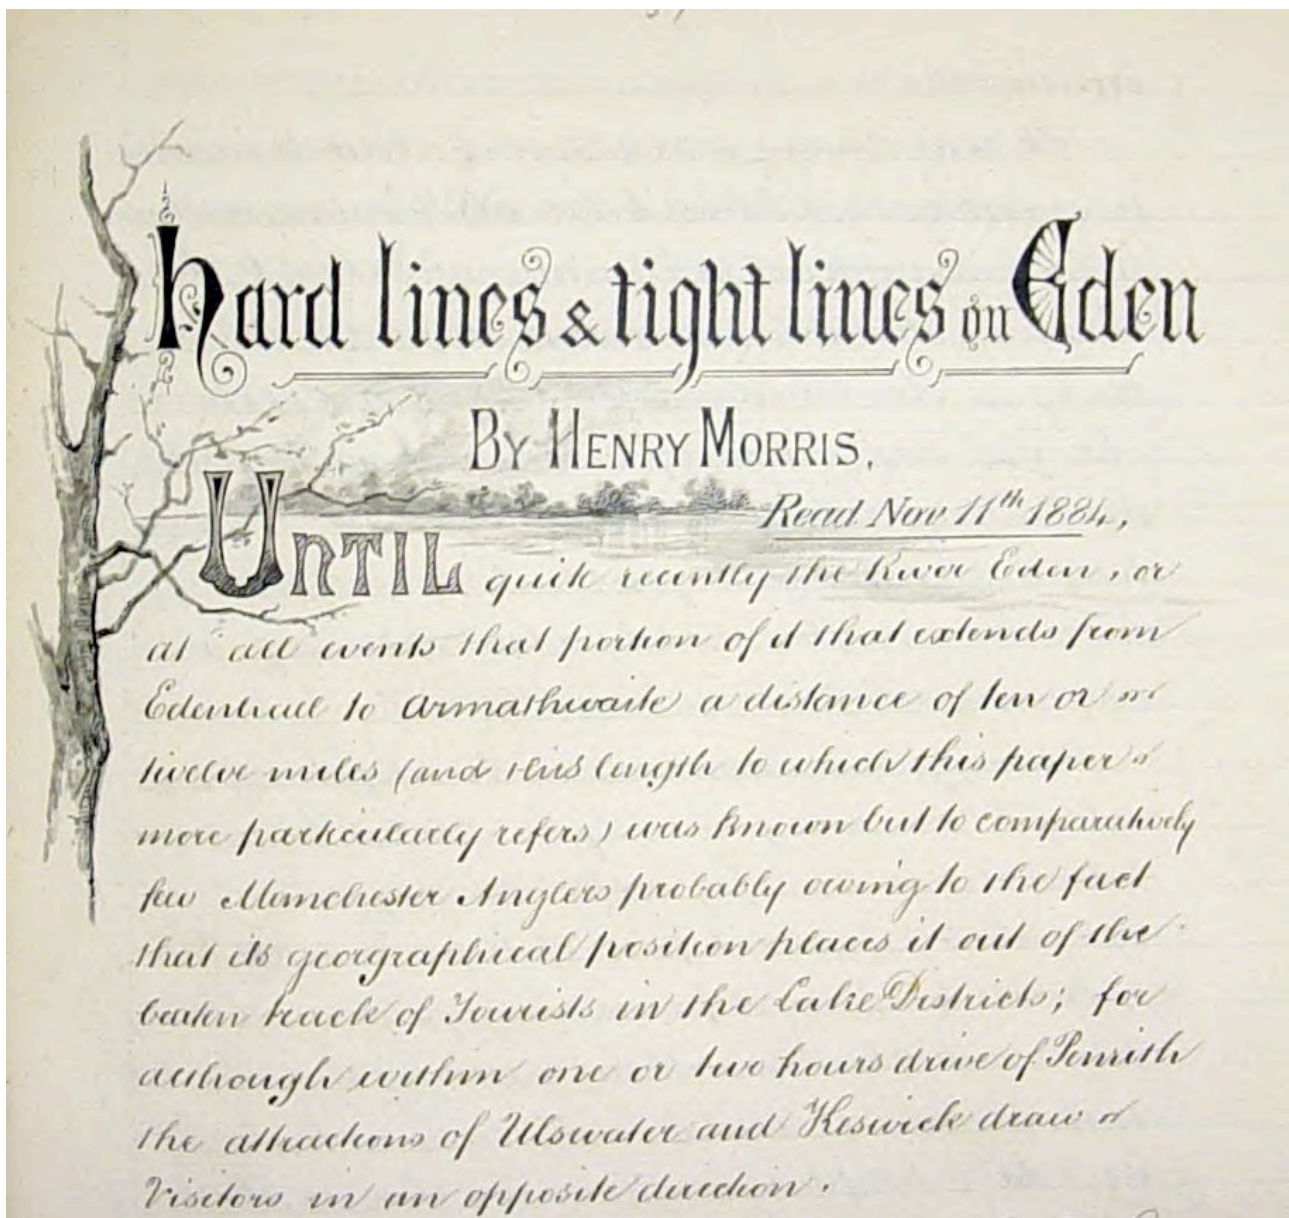 Hard lines & tight lines on Eden
By Henry Morris.
Read Nov 11th 1884,
Until quite recently the River Eden, or
at all events that portion of it that extends from
Edenhall to Armathwaite a distance of ten or
twelve miles (and this length to which this paper
more particularly refers) was known but to comparatively
few Manchester Anglers probably owing to the fact
that its georgraphical position places it out of the
beaten track of Tourists in the Lake Districts; for
although within one or two hours drive of Penrith
the attractions of Ulswater and Keswick draw
Visitors in an opposite direction.